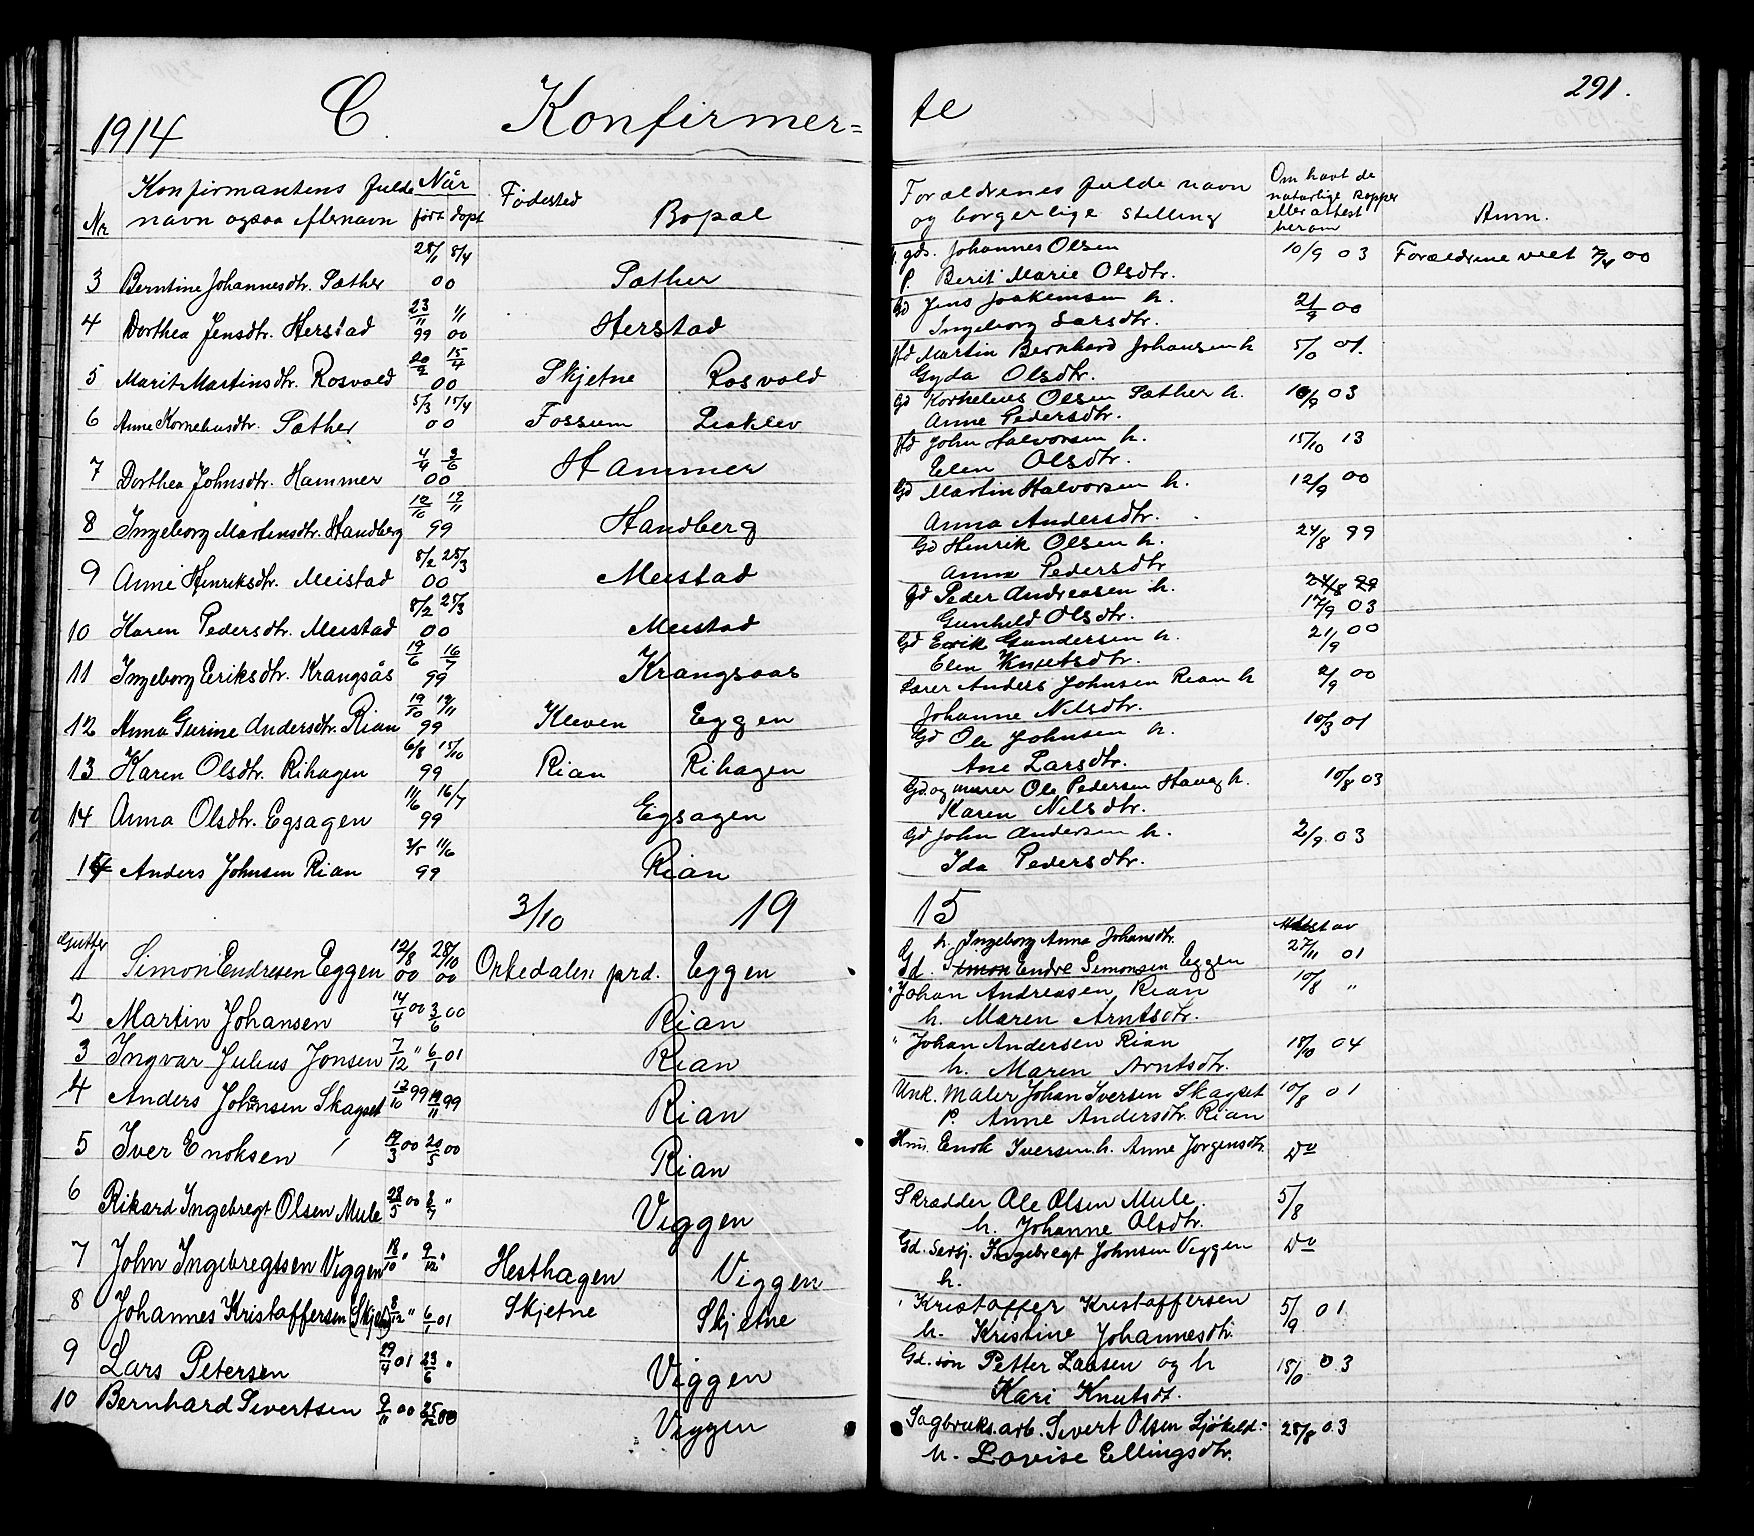 291.
1914 C. Konfirmer= te
Nr Konfirmantens fulde navn ogsaa efternavn Når født døpt Fødested Bopæl Forældrenes fulde navn og borgerlige stilling Om havt de naturlige kopper eller attest herom Anm.
3 Berntine Johannesdtr. Sæther 8/4 00 Sæther gds. Johannes Olsen 10/9 03 Forældrene viet 00
Berit Marie Olsdtr.
4 Dorthea Jensdtr. Herstad 23/11 99 1/1 00 Herstad Gd Jens Joakimsen h. 00
Ingeborg Larsdtr.
5 Marit Martinsdtr. Rosvold 15/4 00 Skjetne Rosvold Martin Bernhard Johansen h 01.
Gyda Olsdtr.
6 Anne Korneliusdtr. Sæther 5/3 15/4 00 Fossum Gd Kornelius Olsen Sæther h. 10/9 03
Anne Pedersdtr.
7 Dorthea Johnsdtr. Hammer 4/4 3/6 00 Hammer John Halvorsen h. 15/10 13
Elen Olsdtr.
8 Ingeborg Martinsdtr. Handberg 12/10 12/11 99 Handberg Gd Martin Halvorsen h. 12/9 00
Anna Andersdtr.
9 Anne Henriksdtr. Meistad 8/2 25/3 00 Meistad Gd Henrik Olsen h. 24/8 99
Anna Pedersdtr
10 Karen Pedersdtr. Meistad 8/2 25/3 00 Meistad Gd Peder Andreasen h. 24/8 99 17/9 03
Gunhild Olsdtr.
11 Ingeborg Eriksdtr. Krangsås 19/6 16/7 99 Krangsaas Gd Eerik Gundersen h. 21/9 00
Elen Knutsdtr.
12 Anna Gurine Andersdtr. Rian 19/10 19/11 99 Kleven Eggen Lærer Anders Johnsen Rian h 2/9 00
Johanne Nilsdtr.
13 Karen Olsdtr. Rihagen 6/8 15/10 99 Rian Rihagen Gd Ole Johnsen h. 10/3 01
Ane Larsdtr.
14 Anna Olsdtr. Egsagen 11/6 16/7 99 Egsagen Gd. og murer Ole Pedersen Haug h. 10/8 03
Karen Nilsdtr.
15 Anders Johnsen Rian 3/5 11/6 99 Rian Gd John Andersen h. 2/9 03
Ida Pedersdtr.
3/10 19 15
Gutter h. Ingeborg Anna Johansdtr.
1 Simon Endresen Eggen 12/8 00 28/10 00 Orkedalen prd. Eggen Gd. Simon Endre Simonsen Eggen 27/11 01
2 Martin Johansen 14/4 00 3/6 00 Rian " Johan Andreasen Rian 10/8 "
h. Maren Arntsdtr.
3 Ingvar Julius Jonsen 7/12 " 6/1 01 Rian " Johan Andersen Rian 18/10 04
h. Maren Arntsdtr.
4 Anders Johansen Skagset 12/10 99 99 Rian Unk. Maler Johan Iversen Skagset 10/8 01
p. Anne Andersdtr. Rian
5 Iver Enoksen 00 20/5 00 Rian Hmd. Enok Iversen h. Anne Jørgensdtr. Do
6 Rikard Ingebregt Olsen Mule 28/5 00 8/7 " Viggen Skrædder Ole Olsen Mule. 5/8
h. Johanne Olsdtr.
7 John Ingebregtsen Viggen 18/10 " 9/12 " Hesthagen Viggen Gd. sersj. Ingebregt Johnsen Viggen Do
h.
8 Johannes Kristaffersen (Skjet) 8/12 " 6/1 01 Skjetne Skjetne " Kristaffer Kristaffersen 5/9 01
h. Kristine Johannesdtr.
9 Lars Petersen 29/4 01 23/6 " Viggen Gd. søn Petter Larsen og h 03
Kari Knutsdt.
10 Bernhard Sivertsen 9/11 00 25/12 00 Viggen Sagbruks.arb. Sivert Olsen 28/8 03
h. Lovise Ellingsdtr.